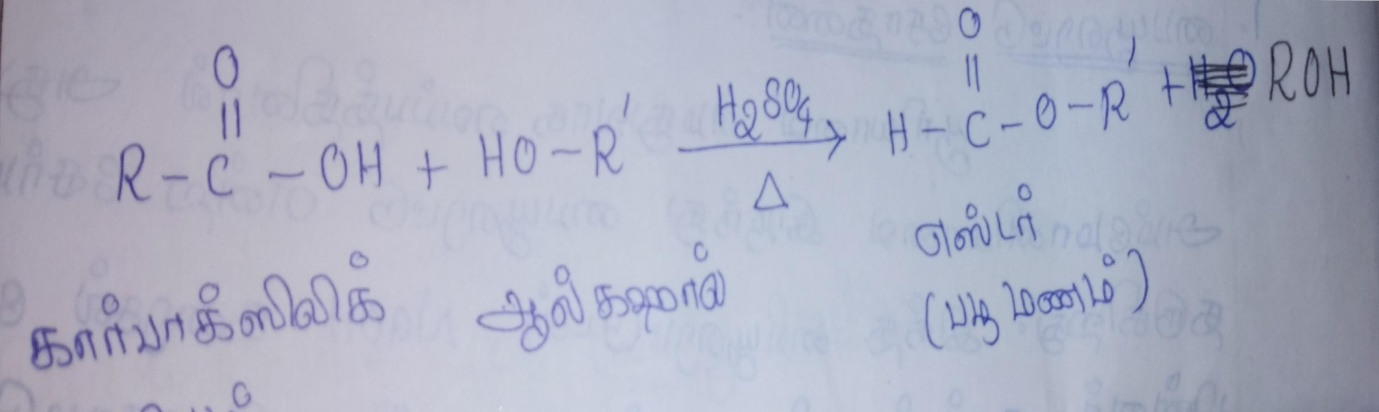 R-C(=O)-OH + HO-R' →[H₂SO₄, Δ] H-C(=O)-O-R' + ROH
கார்பாக்ஸிலிக் ஆல்கஹால் எஸ்டர்
(பழ மணம்)